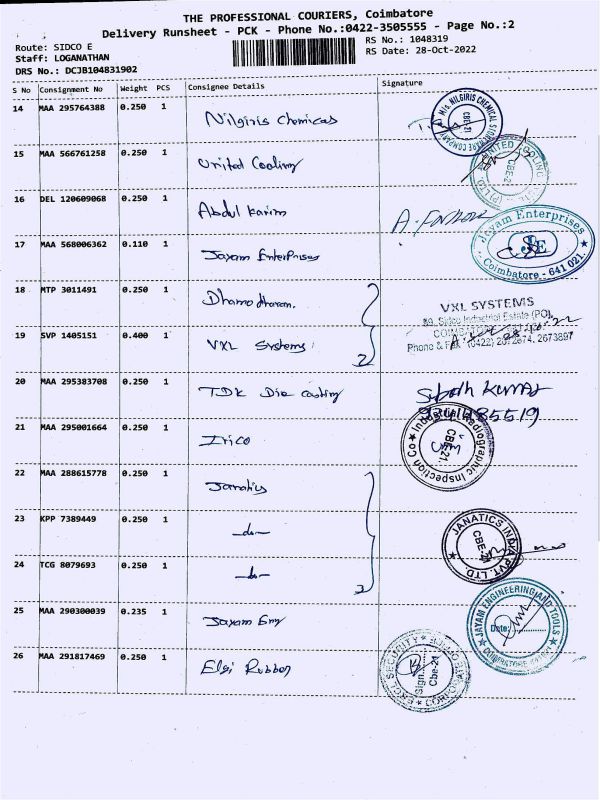 THE PROFESSIONAL COURIERS, Coimbatore
Delivery Runsheet - PCK - Phone No.:0422-3505555 - Page No.:2
Route: SIDCO E
RS No.: 1048319
Staff: LOGANATHAN
RS Date: 28-Oct-2022
DRS No.: DCJB104831902
S No Consignment No Weight PCS Consignee Details Signature
14 MAA 295764388 0.250 1 Nilgiris Chemicals
M/s. NILGIRIS CHEMICAL STONEWARE COMPANY CBE-21
15 MAA 566761258 0.250 1 United Cooling
UNITED COOLING CBE-
16 DEL 120609068 0.250 1 Abdul Karim
17 MAA 568006362 0.110 1 Jayam Enterprises
Jayam Enterprises JE Coimbatore - 641 021.
18 MTP 3011491 0.250 1 Dhamodharan.
19 SVP 1405151 0.400 1 VXL Systems 2
VXL SYSTEMS
89, Sidco Industrial Estate (PO),
COIMBATORE
Phone & Fax (0422) 2674, 2673897
20 MAA 295383708 0.250 1 TDK Die casting
21 MAA 295001664 0.250 1 Irico
Industrial Radiographic Inspection Co CBE-21.
22 MAA 288615778 0.250 1 Janatics
23 KPP 7389449 0.250 1 -do-
24 TCG 8079693 0.250 1 -do-
JANATICS INDIA PVT. LTD. CBE-21
25 MAA 290300039 0.235 1 Jayam Eng
JAYAM ENGINEERING AND TOOLS Date: COIMBATORE
26 MAA 291817469 0.250 1 Elgi Rubber
SECURITY Sign. Cbe-21